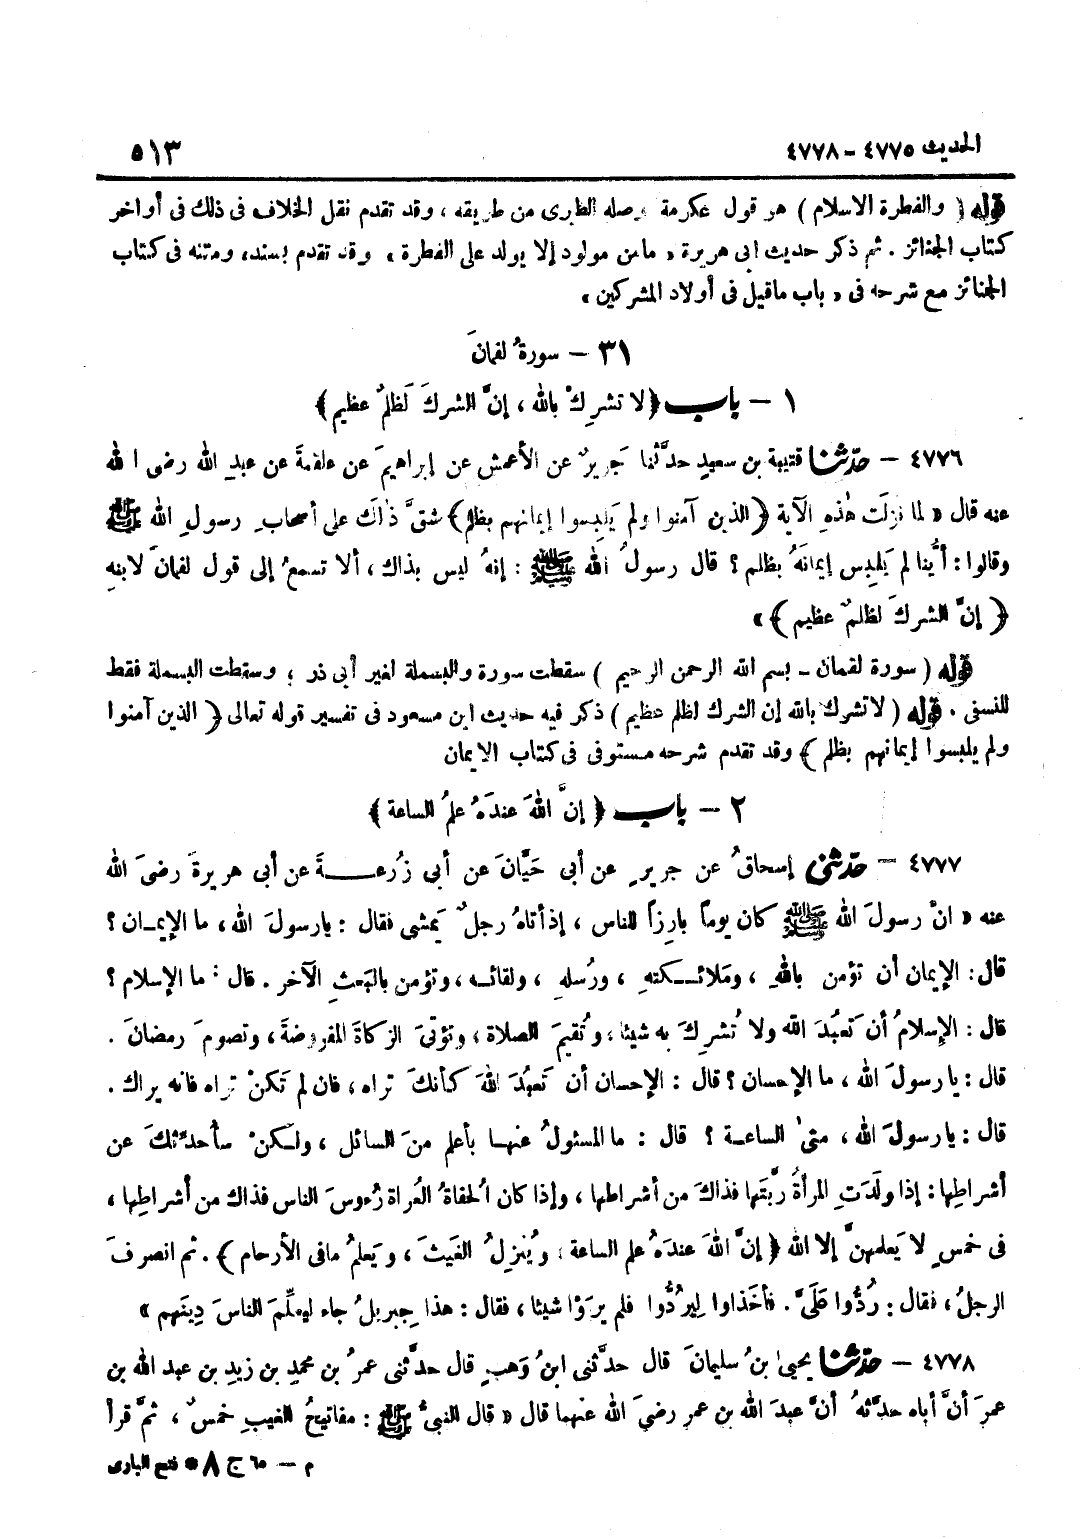 الحديث ٤٧٧٥ – ٤٧٧٨ ٥١٣
قوله ( والفطرة الاسلام ) هو قول عكرمة وصله الطبرى من طريقه ، وقد تقدم نقل الخلاف فى ذلك فى أواخر
كتاب الجنائز . ثم ذكر حديث ابى هريرة « مامن مولود إلا يولد على الفطرة » وقد تقدم بسنده ومتنه فى كتاب
الجنائز مع شرحه فى « باب ماقيل فى أولاد المشركين »
٣١ – سورةُ لقمانَ
١ – باب ﴿لا تشرِكْ بالله ، إنَّ الشركَ لَظلمٌ عظيم﴾
٤٧٧٦ – حدّثنا قتيبة بن سعيدٍ حدَّثنا جَريرٌ عن الأعمش عن إبراهيمَ عن علقمةَ عن عبدِ الله رضى الله
عنه قال « لما نزلَت هٰذهِ الآية ﴿الذين آمنوا ولم يَلبِسوا إيمانهم بظلم﴾ شقَّ ذلك على أصحابِ رسولِ الله ﷺ
وقالوا : أيُّنا لم يَلبِس إيمانَهُ بظلم ؟ قال رسولُ الله ﷺ : إنهُ ليس بذاك ، ألا تسمعُ إلى قول لقمانَ لابنهِ
﴿ إنَّ الشركَ لَظلمٌ عظيم ﴾ »
قوله ( سورة لقمان – بسم الله الرحمن الرحيم ) سقطت سورة والبسملة لغير أبى ذر ، وسقطت البسملة فقط
للنسفى . قوله ( لاتشرك بالله إن الشرك لظلم عظيم ) ذكر فيه حديث ابن مسعود فى تفسير قوله تعالى ﴿ الذين آمنوا
ولم يلبسوا إيمانهم بظلم ﴾ وقد تقدم شرحه مستوفى فى كتاب الايمان
٢ – باب ﴿ إنَّ اللهَ عندَهُ علمُ الساعة ﴾
٤٧٧٧ – حدّثنى إسحاقُ عن جريرٍ عن أبى حَيَّانَ عن أبى زُرعةَ عن أبى هريرةَ رضىَ الله
عنه « انَّ رسولَ الله ﷺ كان يوماً بارِزاً للناس ، إذ أتاهُ رجلٌ يَمشى فقال : يارسولَ الله ، ما الإيمان ؟
قال : الإيمان أن تؤمن باللهِ ، ومَلائكتهِ ، ورُسلهِ ، ولقائه ، وتؤمن بالبَعثِ الآخر . قال : ما الإسلام ؟
قال : الإسلامُ أن تَعبُدَ الله ولا تُشرِكَ به شيئا ، وتُقيمَ الصلاة ، وتؤتىَ الزكاةَ المفروضةَ ، وتصومَ رمضانَ .
قال : يا رسولَ الله ، ما الإحسان ؟ قال : الإحسان أن تَعبُدَ اللهَ كأنكَ تراه ، فان لم تَكنْ تراه فانه يراك .
قال : يا رسولَ الله ، متىٰ الساعة ؟ قال : ما المسئولُ عنها بأعلم منَ السائل ، ولكنْ سأُحدِّثكَ عن
أشراطِها : إذا ولَدَتِ المرأةُ ربَّتَها فذاكَ من أشراطها ، وإذا كان الحفاةُ العُراة رُءوسَ الناس فذاك من أشراطِها ،
فى خمسٍ لا يَعلمهنَّ إلا الله ﴿ إنَّ اللهَ عندَهُ علم الساعة ، ويُنزِلُ الغَيثَ ، ويَعلمُ مافى الأرحام ﴾ . ثم انصرفَ
الرجلُ ، فقال : رُدُّوا علىَّ . فأخَذوا لِيردُّوا فلم يرَوْا شيئا ، فقال : هذا جِبريلُ جاء ليعلِّمَ الناسَ دِينَهم »
٤٧٧٨ – حدّثنا يحيىٰ بنُ سليمانَ قال حدَّثنى ابنُ وَهبٍ قال حدَّثنى عمرُ بن محمدِ بن زيدِ بن عبد الله بن
عمرَ أنَّ أباه حدَّثهُ أنَّ عبدَ الله بن عمر رضىَ الله عنهما قال « قال النبىُّ ﷺ : مفاتيحُ الغيبِ خمسٌ ، ثمَّ قرأ
م – ٦٥ ج ٨ * فتح البارى